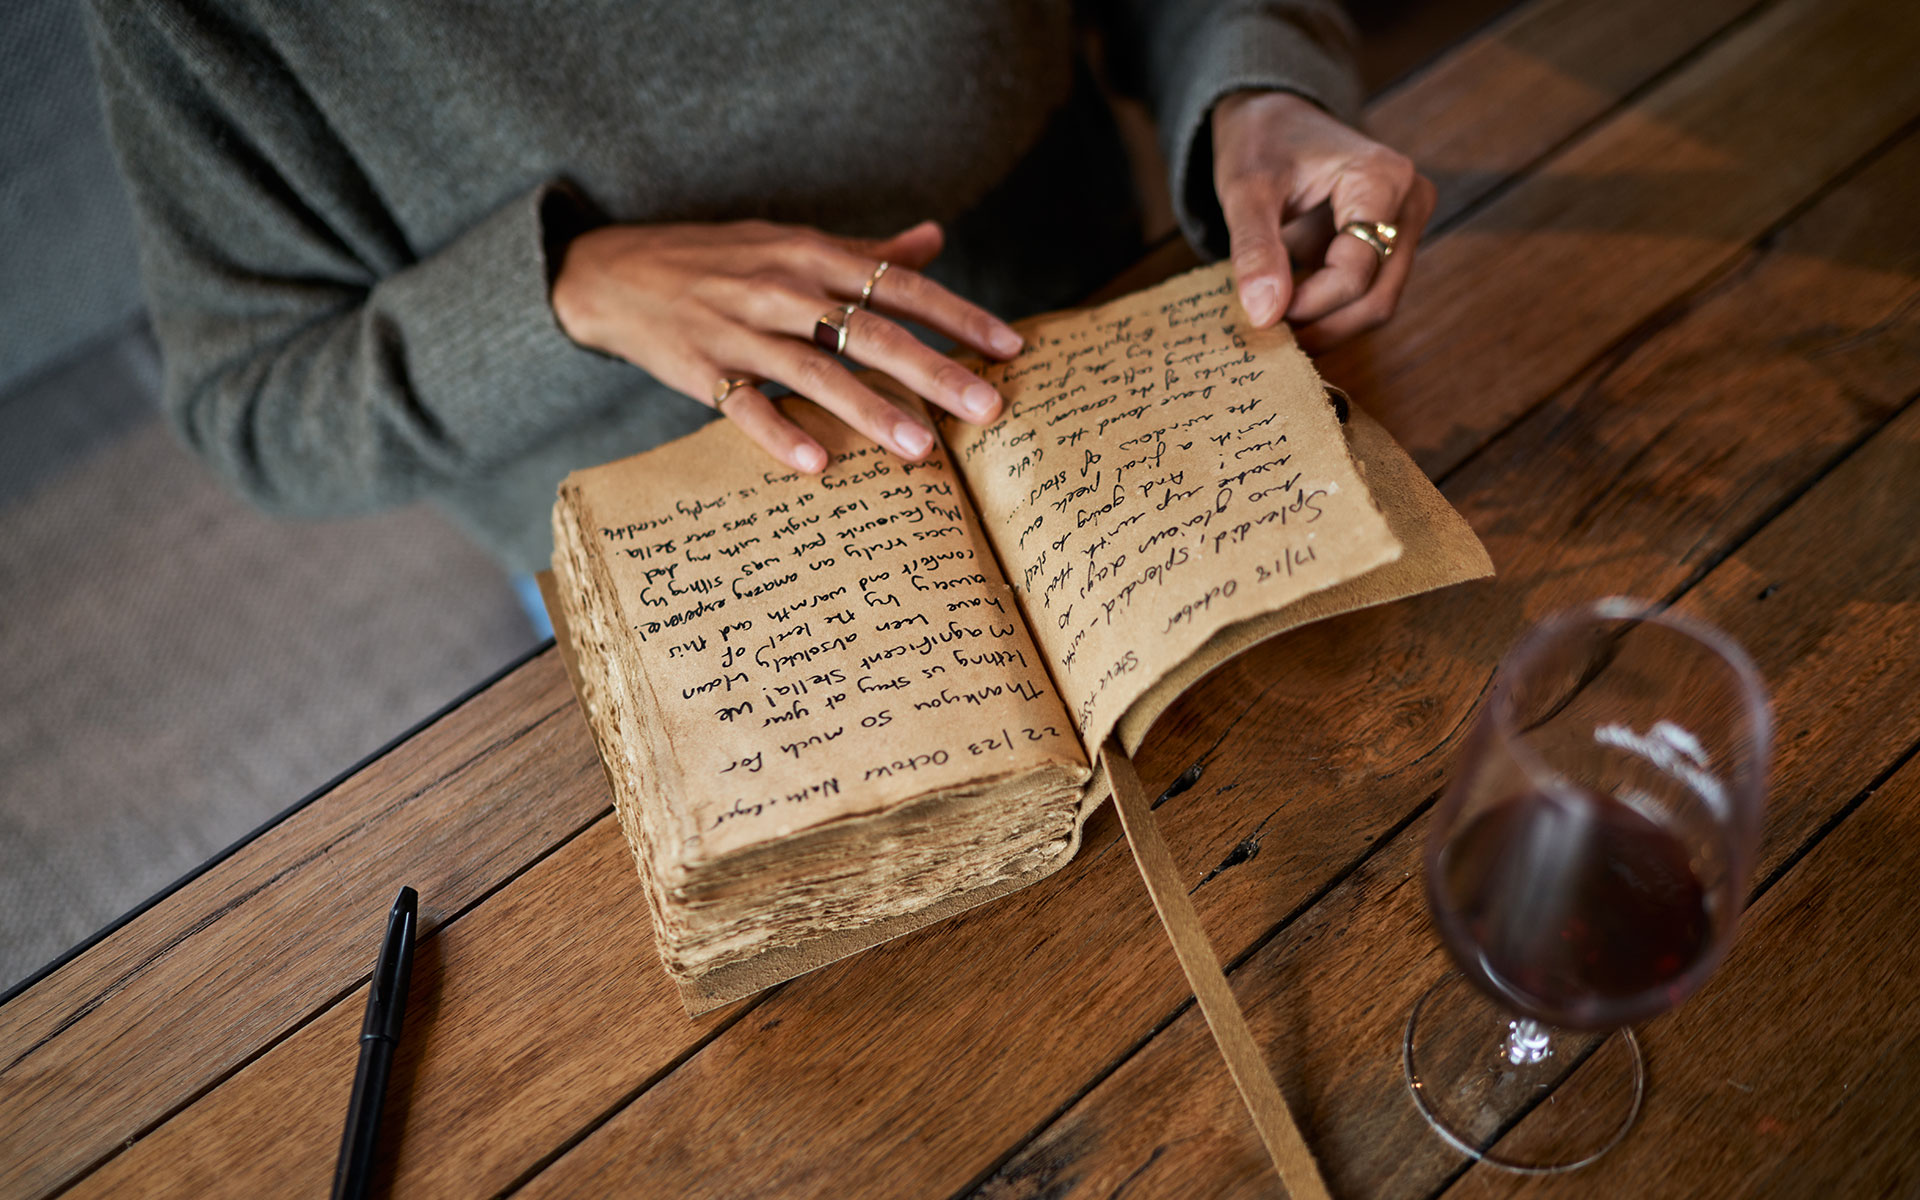 17/18 October Steve +
Splendid, splendid - with
two glorious days to
wake up with that
view! And going to sleep
with a final peek out
the window of stars....
We have loved the little
quirks of the caravan too,
grinding coffee washing
by the fire.
loving Gippsland, having
produce - this is a
22/23 October
Thankyou so much for
letting us stay at your
magnificent Stella! We
have been absolutely blown
away by the level of
comfort and warmth and this
was truly an amazing experience!
My favourite part was sitting by
the fire last night with my dad
and gazing at the stars over Stella.
have
say is, simply incredible